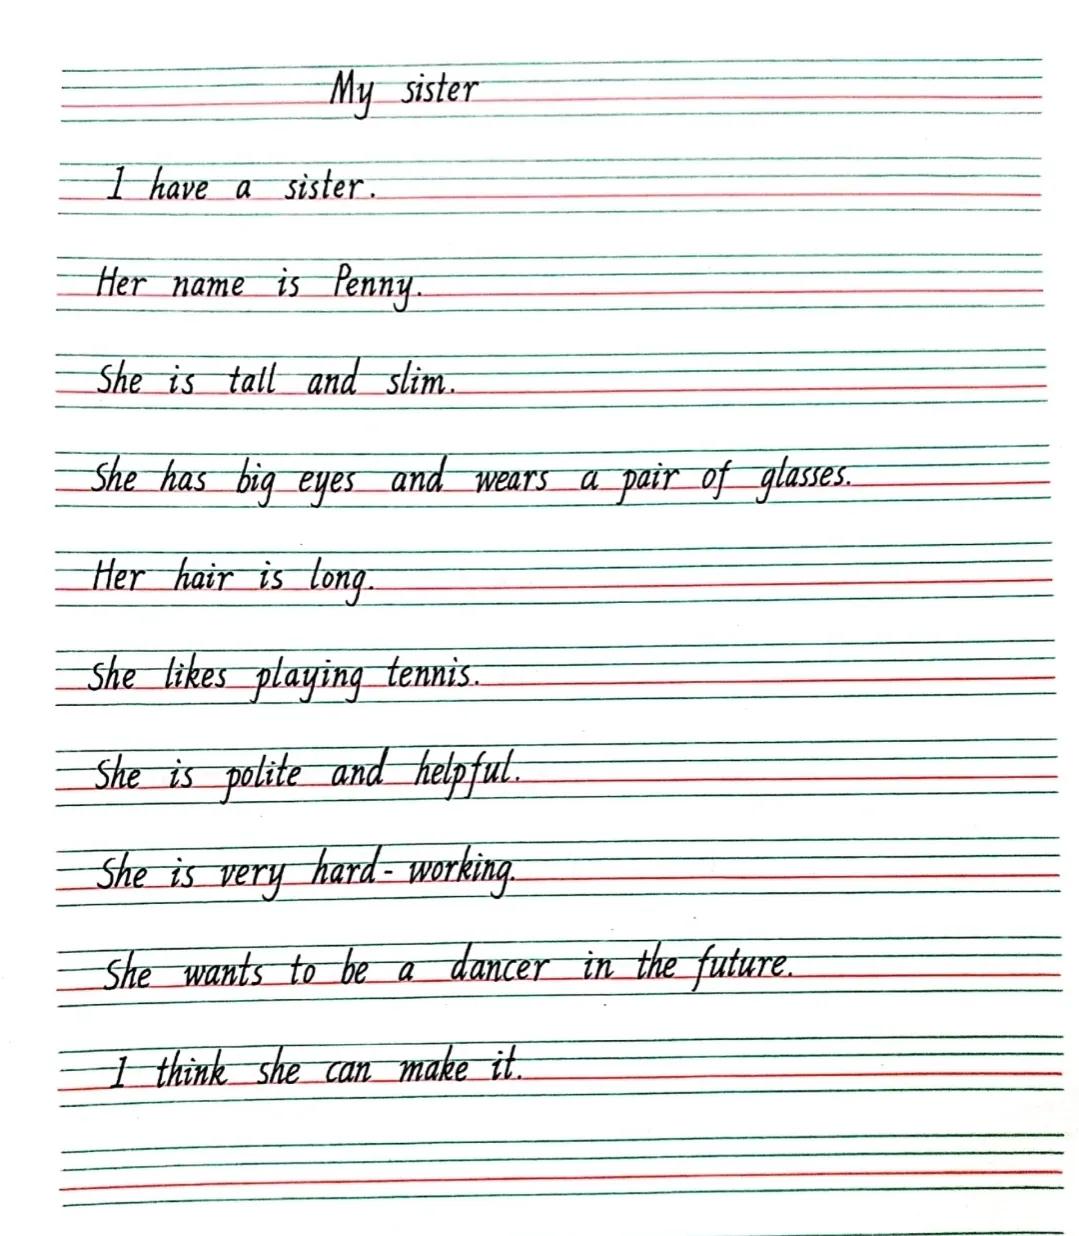 My sister
I have a sister.
Her name is Penny.
She is tall and slim.
She has big eyes and wears a pair of glasses.
Her hair is long.
She likes playing tennis.
She is polite and helpful.
She is very hard-working.
She wants to be a dancer in the future.
I think she can make it.